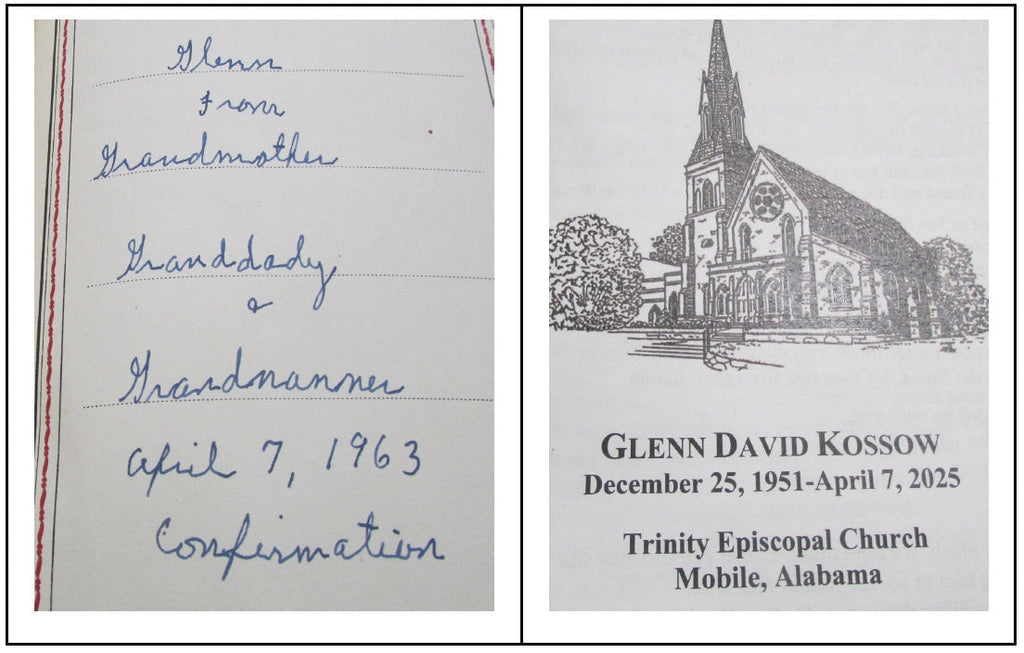 Glenn
From
Grandmother
Granddady,
&
Grandnanner
April 7, 1963
Confirmation
GLENN DAVID KOSSOW
December 25, 1951-April 7, 2025
Trinity Episcopal Church
Mobile, Alabama